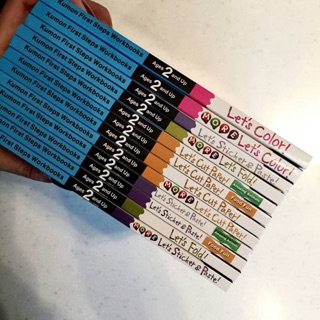 Kumon First Steps Workbooks Ages 2 and Up Let's Color!
Kumon First Steps Workbooks Ages 2 and Up MORE Let's Color!
Kumon First Steps Workbooks Ages 2 and Up Let's Sticker & Paste!
Kumon First Steps Workbooks Ages 2 and Up MORE Let's Fold!
Kumon First Steps Workbooks Ages 2 and Up Let's Cut Paper!
Kumon First Steps Workbooks Ages 2 and Up Let's Cut Paper! Food Fun
Kumon First Steps Workbooks Ages 2 and Up MORE Let's Cut Paper!
Kumon First Steps Workbooks Ages 2 and Up Let's Sticker & Paste!
Kumon First Steps Workbooks Ages 2 and Up Let's Cut Paper! Food Fun
Kumon First Steps Workbooks Ages 2 and Up Let's Fold!
First Steps Workbooks Ages 2 and Up MORE Let's Sticker & Paste!